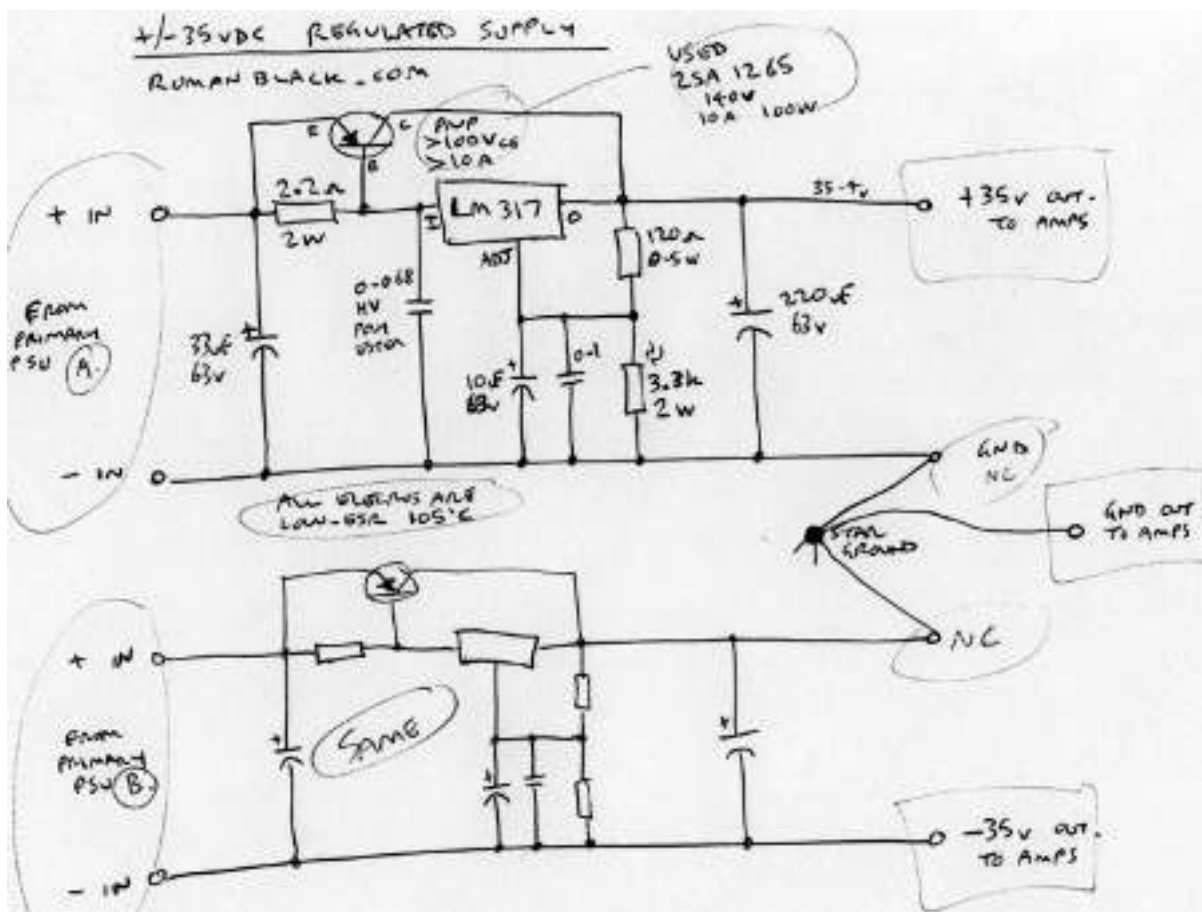 +/-35VDC REGULATED SUPPLY
ROMANBLACK.COM
USED
2SA 1265
140V
10A 100W
E
C
B
PNP
>100VCE
>10A
+ IN
2.2Ω
2W
I
LM317
O
ADJ
35.4V
+35V OUT.
TO AMPS
120Ω
0.5W
FROM
PRIMARY
PSU A.
33uF
63V
0.068
HV
10uF
63V
0.1
3.3k
2W
220uF
63V
- IN
ALL ELECTROS ARE
LOW-ESR 105°C
GND
NC
STAR
GROUND
GND OUT
TO AMPS
+ IN
NC
FROM
PRIMARY
PSU B.
SAME
- IN
-35V OUT.
TO AMPS